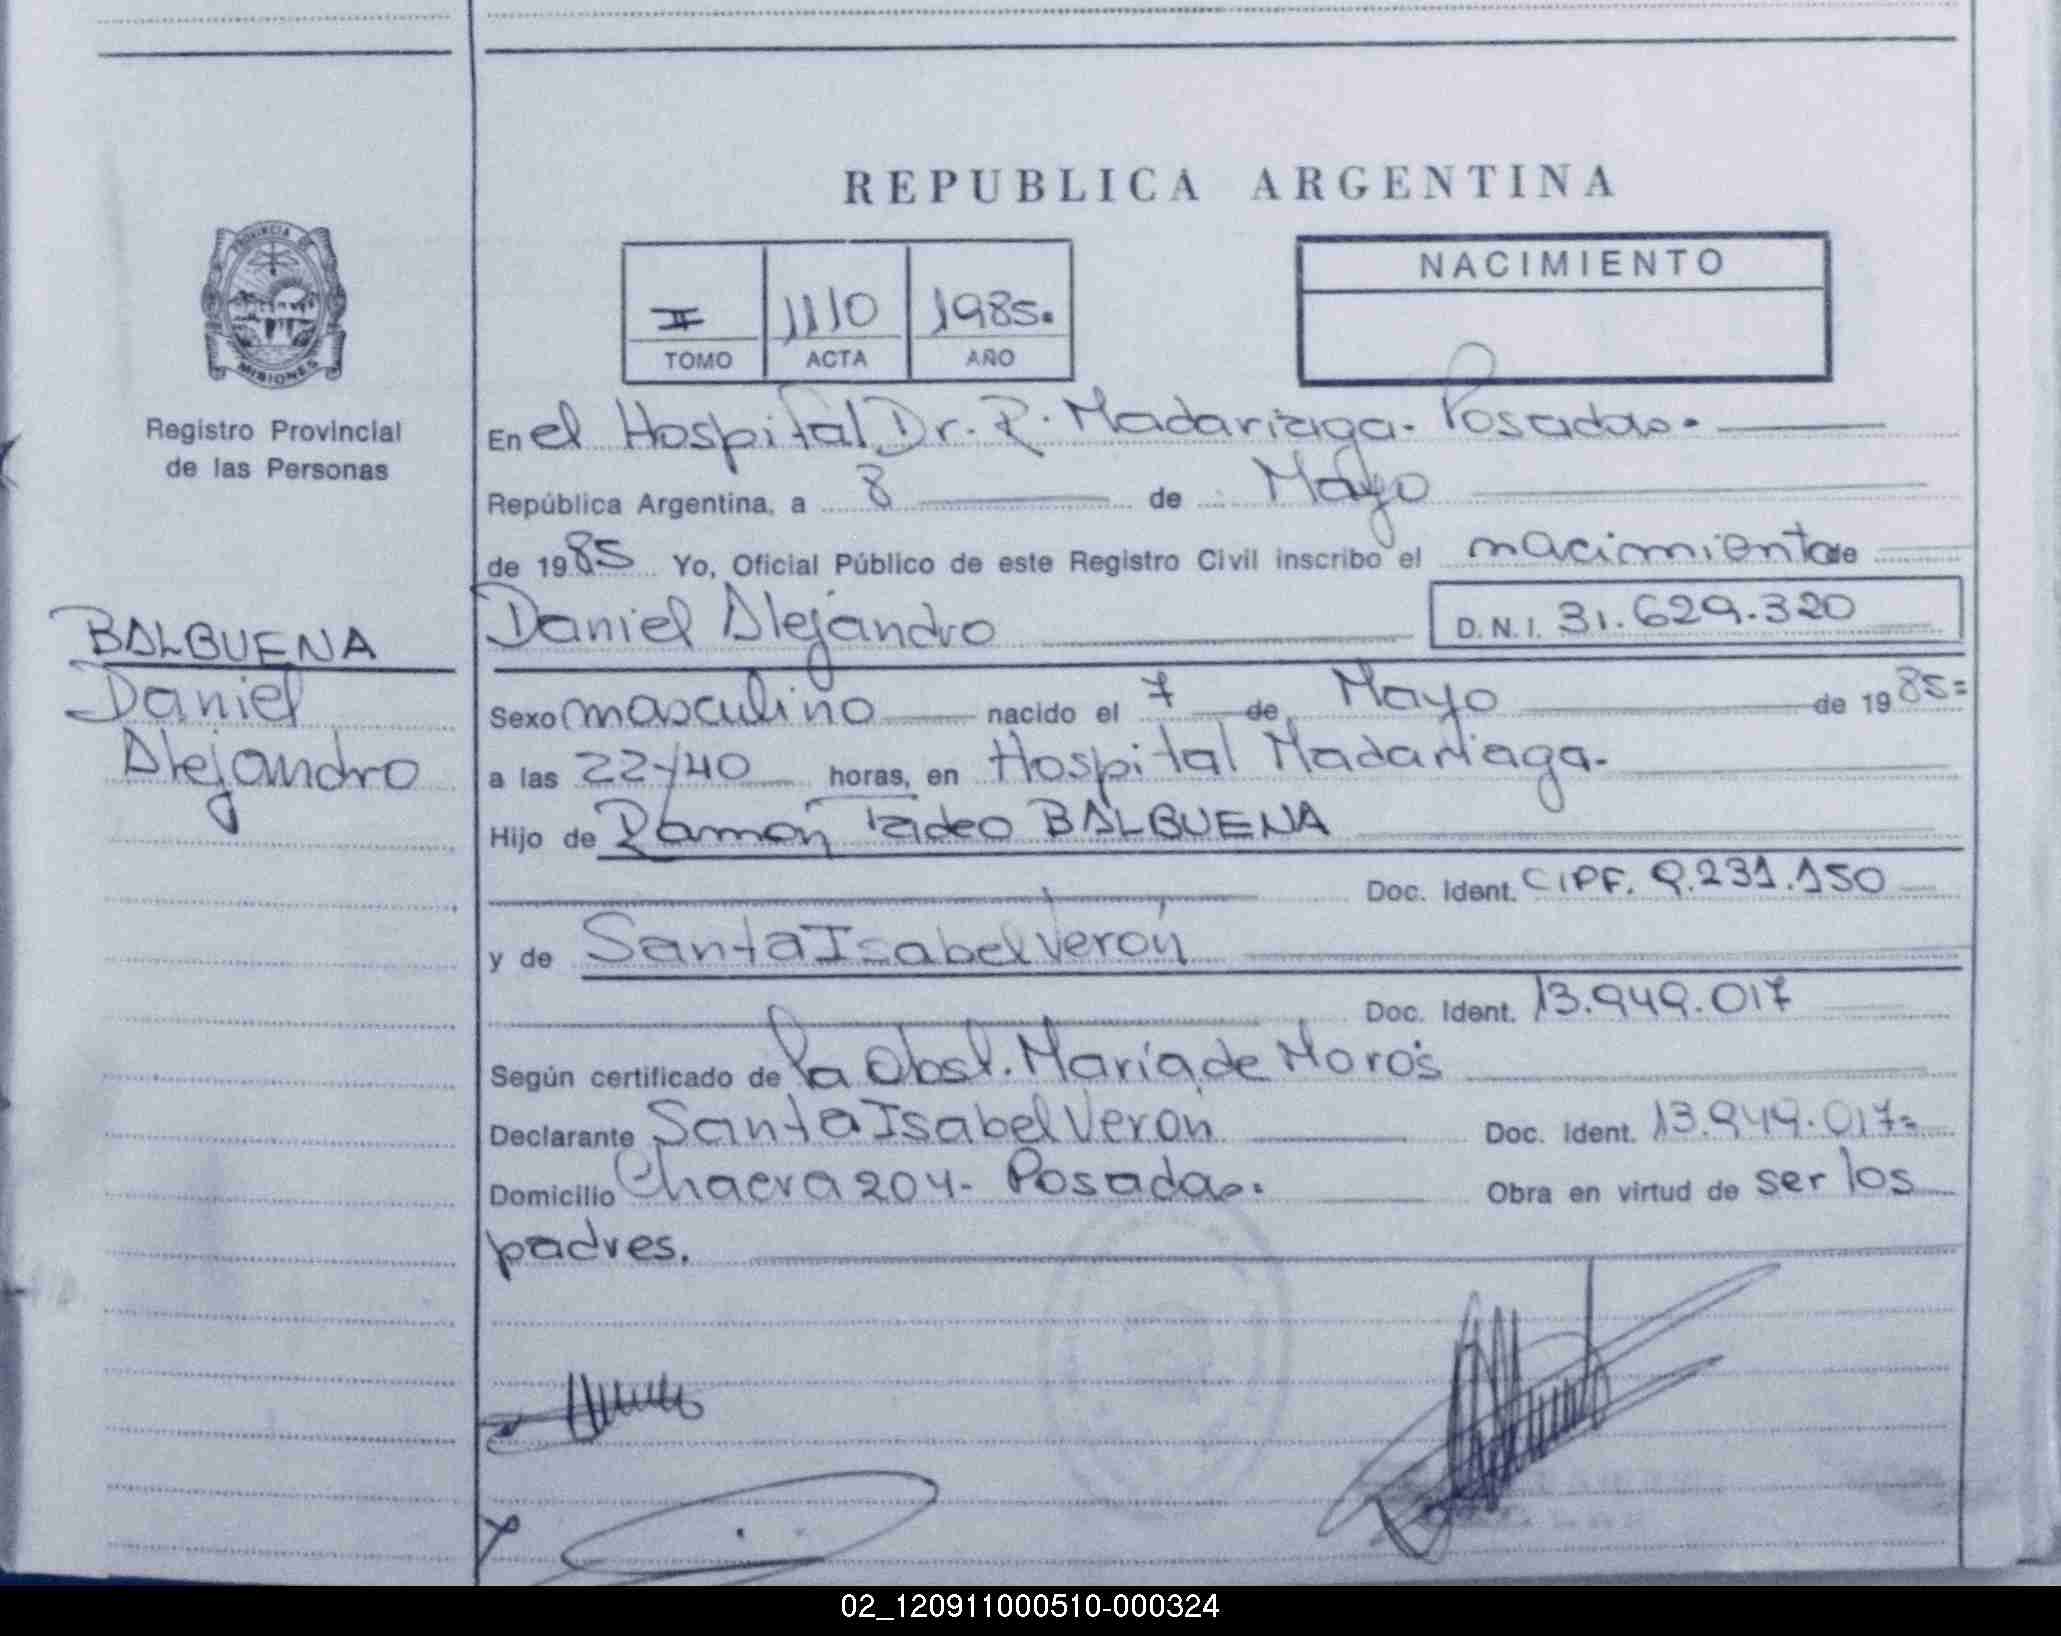 REPUBLICA ARGENTINA
PROVINCIA DE
MISIONES
Registro Provincial
de las Personas
II 1110 1985.
TOMO ACTA AÑO
NACIMIENTO
En el Hospital Dr. R. Madariaga. Posadas.
República Argentina, a 8 de Mayo
de 1985 Yo, Oficial Público de este Registro Civil inscribo el nacimiento de
BALBUENA
Daniel
Alejandro
Daniel Alejandro D.N.I. 31.629.320
Sexo masculino nacido el 7 de Mayo de 1985=
a las 22y40 horas, en Hospital Madariaga.
Hijo de Ramón Tadeo BALBUENA
Doc. Ident. CIPF. 9.231.150
y de Santa Isabel Verón
Doc. Ident. 13.949.017
Según certificado de la Obst. María de Moros
Declarante Santa Isabel Verón Doc. Ident. 13.949.017=
Domicilio Chacra 204- Posadas. Obra en virtud de ser los
padres.
02_120911000510-000324